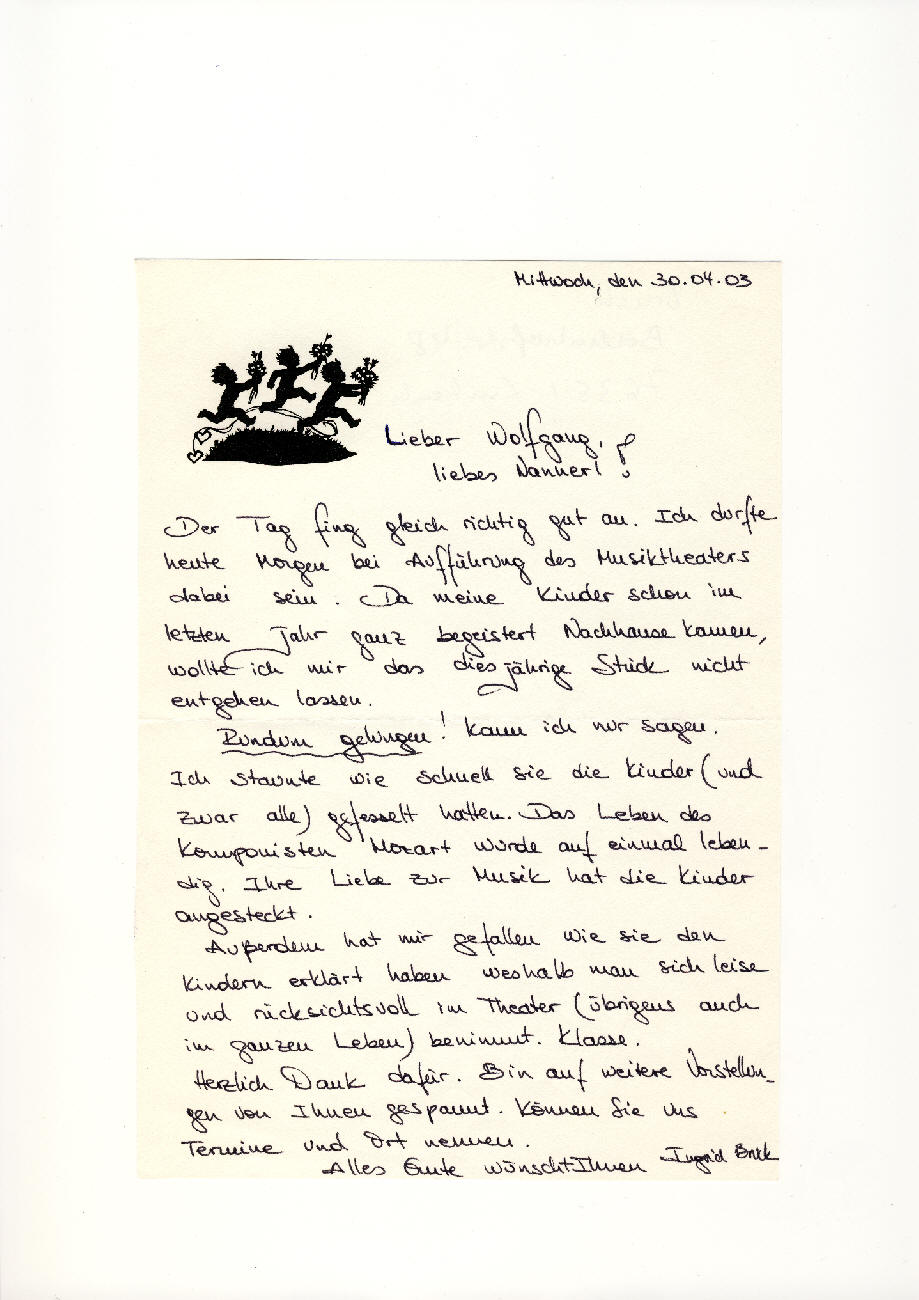 Mittwoch, den 30.04.03
Lieber Wolfgang,
liebes Nannerl!
Der Tag fing gleich richtig gut an. Ich durfte
heute Morgen bei Aufführung des Musiktheaters
dabei sein. Da meine Kinder schon im
letzten Jahr ganz begeistert Nachhause kamen,
wollte ich mir das diesjährige Stück nicht
entgehen lassen.
Rundum gelungen! Kann ich nur sagen.
Ich staunte wie schnell sie die Kinder (und
zwar alle) gefesselt hatten. Das Leben des
Komponisten Mozart wurde auf einmal leben-
dig. Ihre Liebe zur Musik hat die Kinder
angesteckt.
Außerdem hat mir gefallen wie sie den
Kindern erklärt haben weshalb man sich leise
und rücksichtsvoll im Theater (übrigens auch
im ganzen Leben) benimmt. Klasse.
Herzlich Dank dafür. Bin auf weitere Vorstellun-
gen von Ihnen gespannt. Können Sie uns
Termine und Ort nennen.
Alles Gute wünscht Ihnen Ingrid